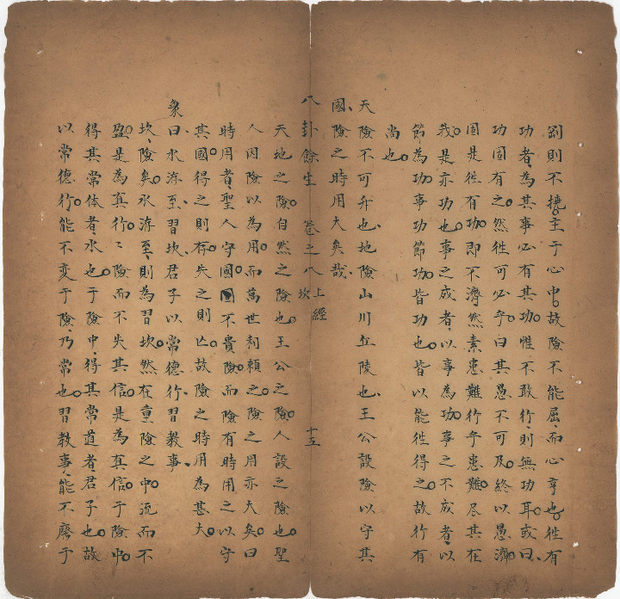 剛則不撓主于心中故險不能屈而心亨也徃有
功者為其事必有其功惟不敢行則無功耳或曰
功固有之然徃可必乎曰其愚不可及終以愚濟
固是徃有功即不濟然素患難行乎患難尽其在
我是亦功也事之成者以事為功事之不成者以
節為功事功節功皆功也皆以能徃得之故行有
尚也
天險不可升也地險山川丘陵也王公設險以守其
國險之時用大矣哉
八卦餘生 卷之八 上經 坎 十五
天地之險自然之險也王公之險人設之險也聖
人因險以為用而萬世利賴之險之用亦大矣曰
時用者聖人守國不貴險而險有時用之以守
其國得之則存失之則亡故險之時用為甚大
象曰水洊至習坎君子以常德行習教事
坎險矣水洊至則為習坎然在重險之中流而不
盈是為真行行險而不失其信是為真信于險中
得其常者水也于險中得其常道者君子也故
以常德行能不变于險乃常也習教事能不廢于